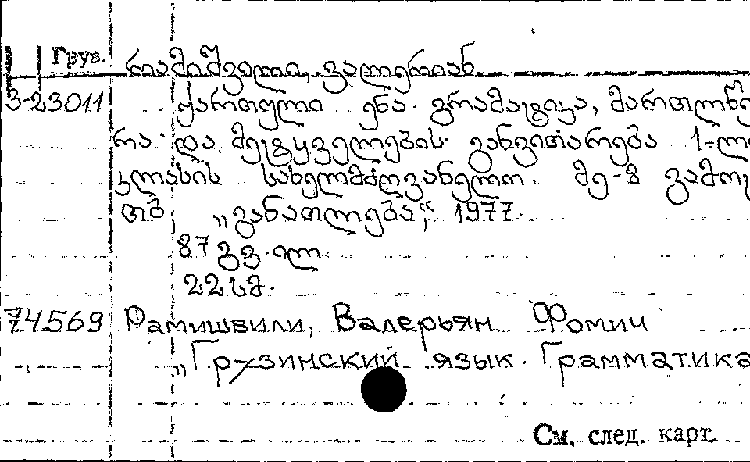 Груз.
რამიშვილი, ვალერიან
3-23011 ქართული ენა. გრამატიკა, მართლწე
რა და მეტყველების განვითარება 1-ლი
კლასის სახელმძღვანელო. მე-8 გამოც
თბ „განათლება“, 1977.
87 გვ. ილ.
22 სმ.
74569 Рамишвили, Валерьян Фомич
„Грузинский язык. Грамматика
См. след. карт.